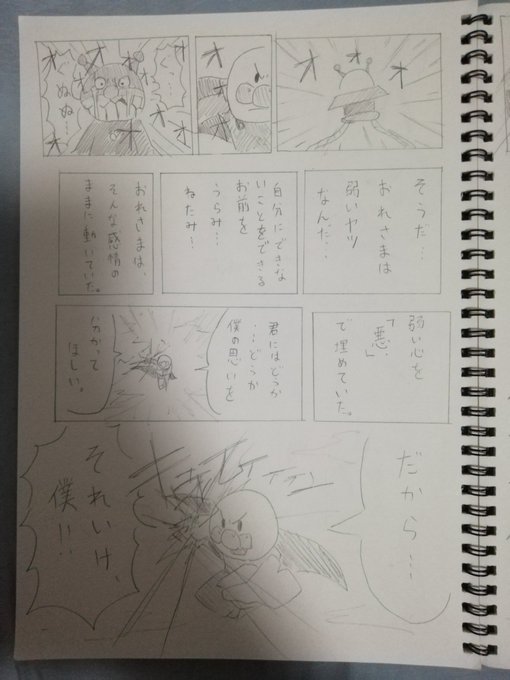 オオオオオ
オオオオ
ぐ…
ぐぬぬ…
オオオオオオ
そうだ…
おれさまは
弱いヤツ
なんだ…
自分にできな
いことをできる
お前を
うらみ…
ねたみ…
おれさまは、
そんな感情の
ままに動いていた。
弱い心を
「悪」
で埋めていた。
君にはどうか
…どうか
僕の思いを
分かって
ほしい。
だから…
それいけ、
僕!!